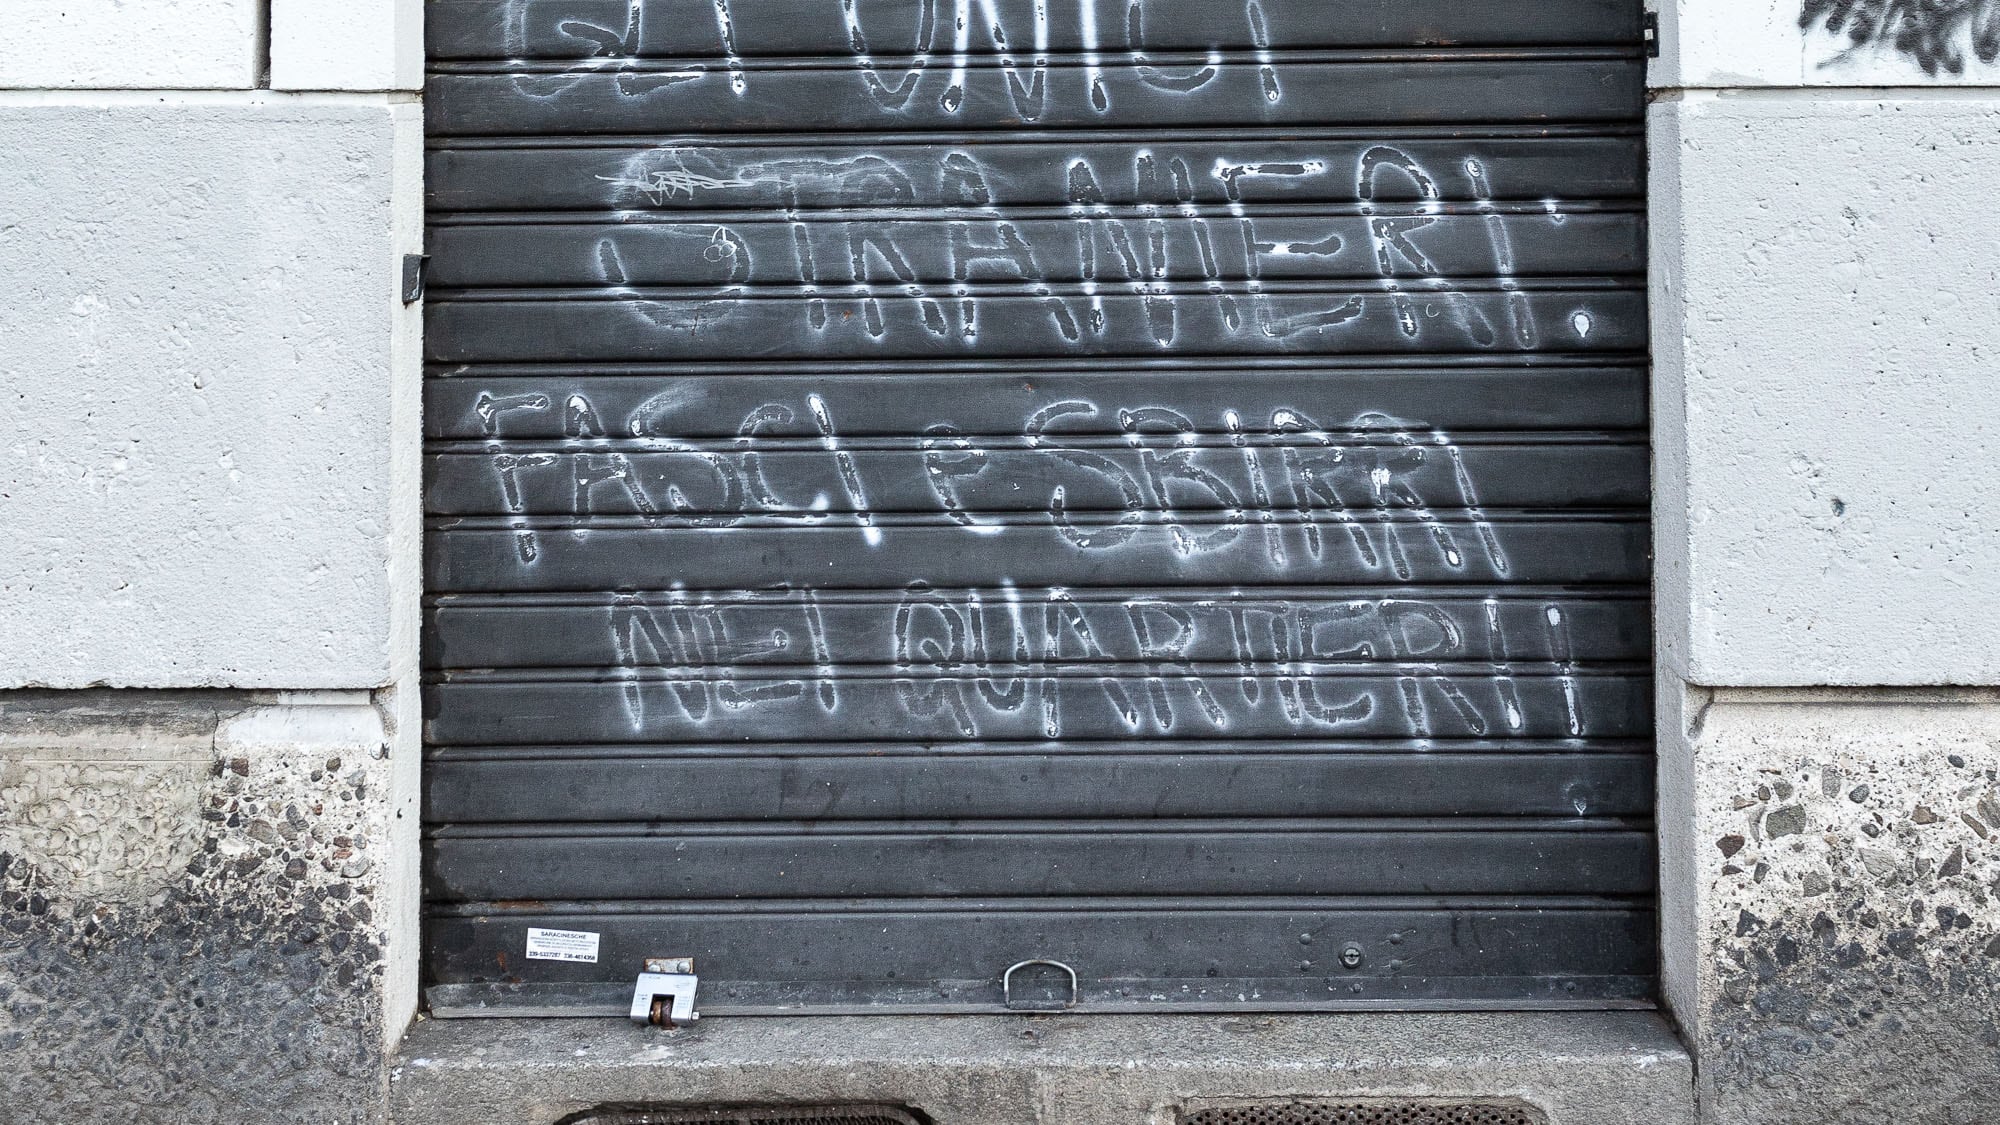 GLI UNICI
STRANIERI
FASCI e SBIRRI
NEI QUARTIERI!
SARACINESCHE
339-5337287 336-4614358